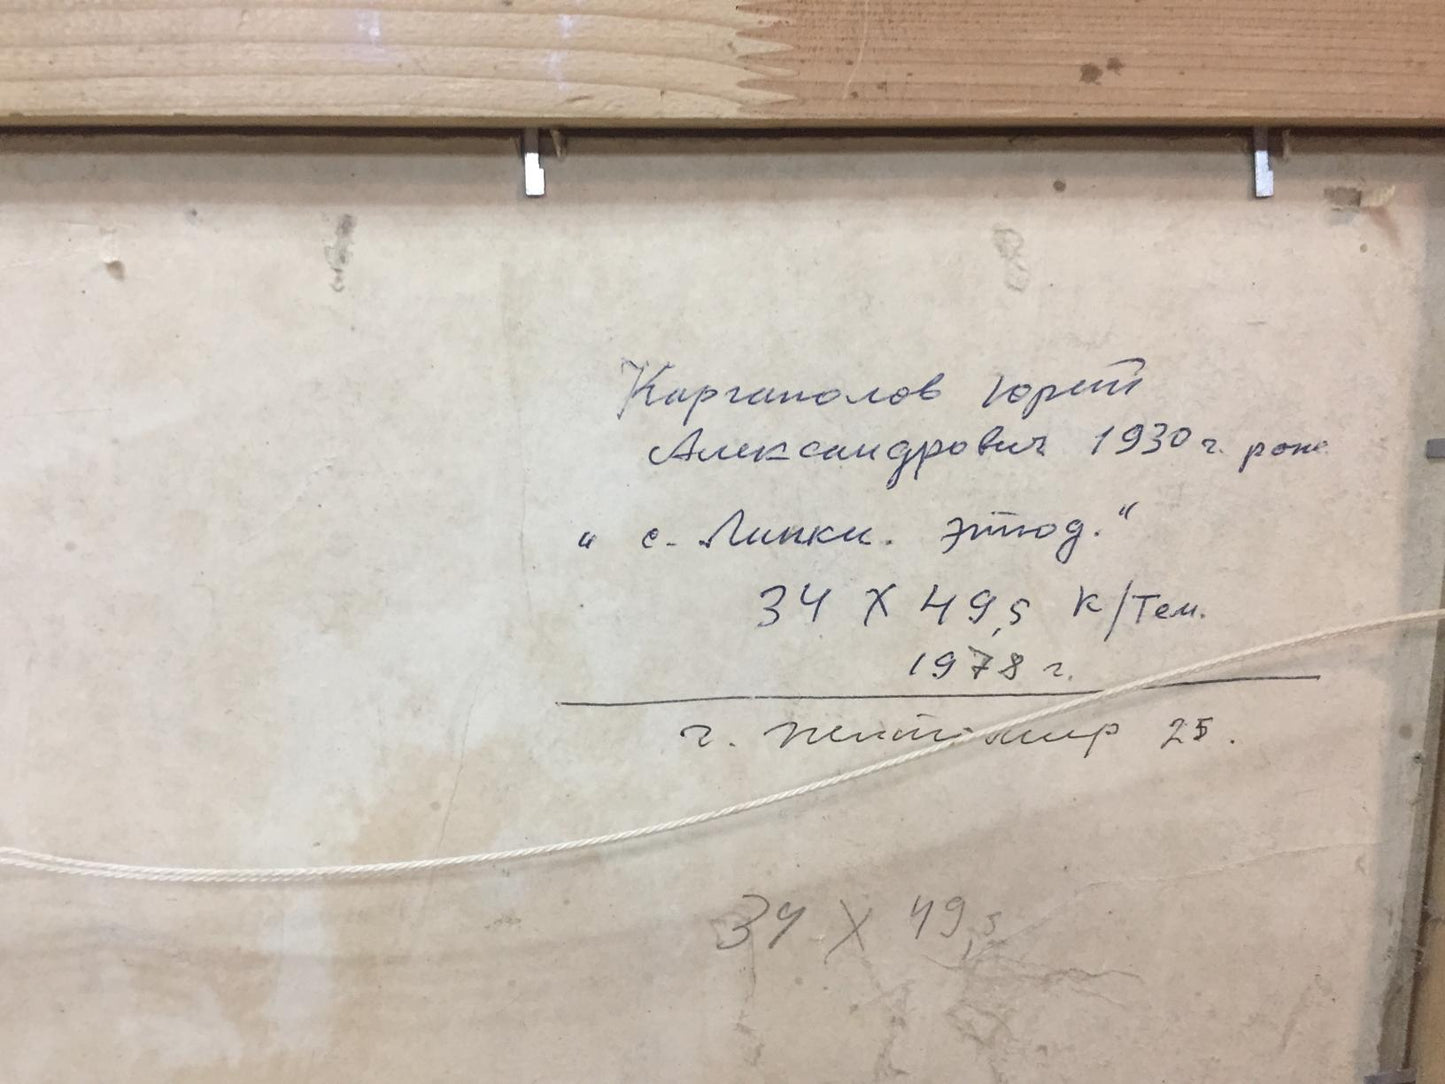 Каргаполов Юрий
Александрович 1930 г. рожд
„ с. Липки. Этюд. “
34 X 49,5 К/Тем.
1978 г.
г. Житомир 25.
34 X 49,5